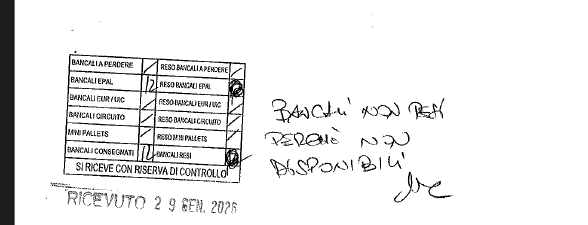 BANCALI A PERDERE / RESO BANCALI A PERDERE /
BANCALI EPAL 12 RESO BANCALI EPAL
BANCALI EUR / UIC / RESO BANCALI EUR / UIC /
BANCALI CIRCUITO / RESO BANCALI CIRCUITO /
MINI PALLETS / RESO MINI PALLETS /
BANCALI CONSEGNATI 12 BANCALI RESI
SI RICEVE CON RISERVA DI CONTROLLO
BANCALI NON RESI
PERCHÈ NON
DISPONIBILI
RICEVUTO 29 GEN. 2026